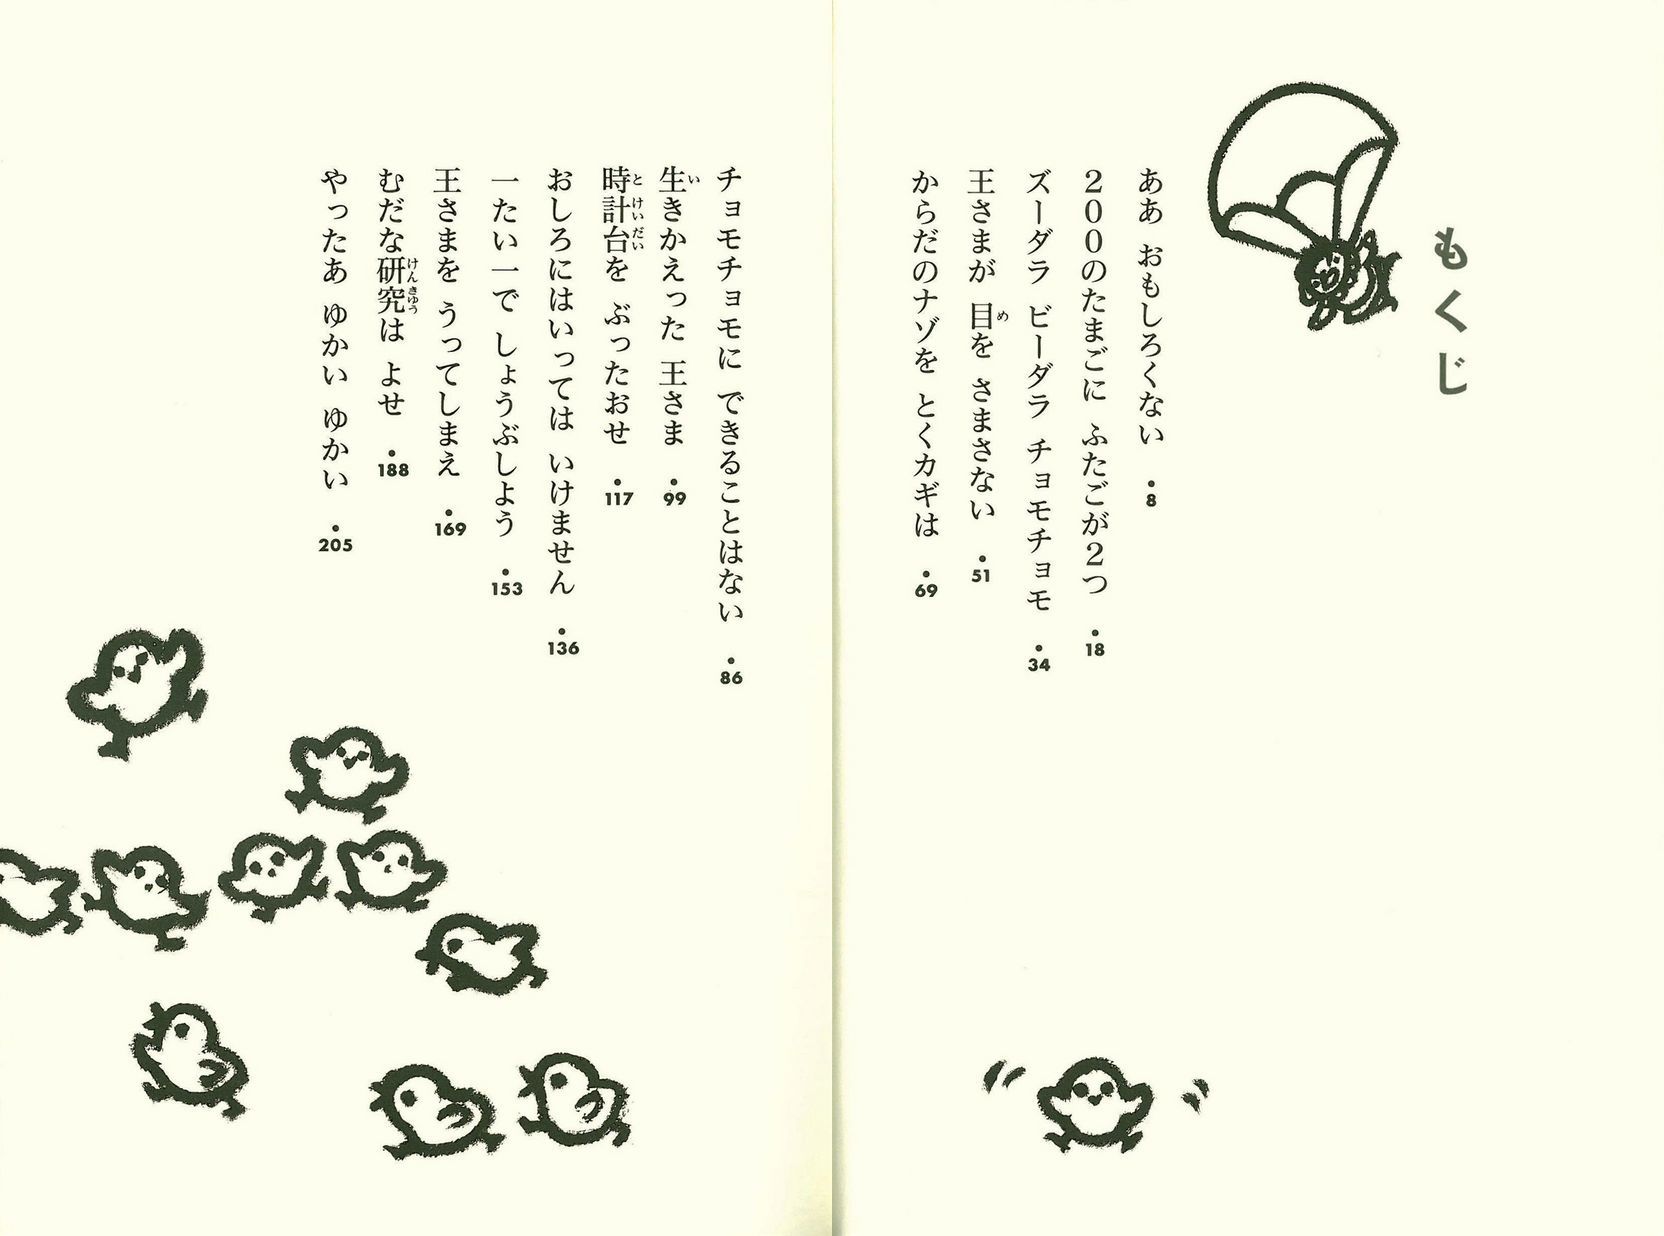 もくじ
ああ おもしろくない ●8
200のたまごに ふたごが2つ ●18
ズーダラ ビーダラ チョモチョモ ●34
王さまが 目を さまさない ●51
め
からだのナゾを とくカギは ●69
チョモチョモに できることはない ●86
生きかえった 王さま ●99
い
時計台を ぶったおせ ●117
とけいだい
おしろにはいっては いけません ●136
一たい一で しょうぶしよう ●153
王さまを うってしまえ ●169
むだな研究は よせ ●188
けんきゅう
やったあ ゆかい ゆかい ●205